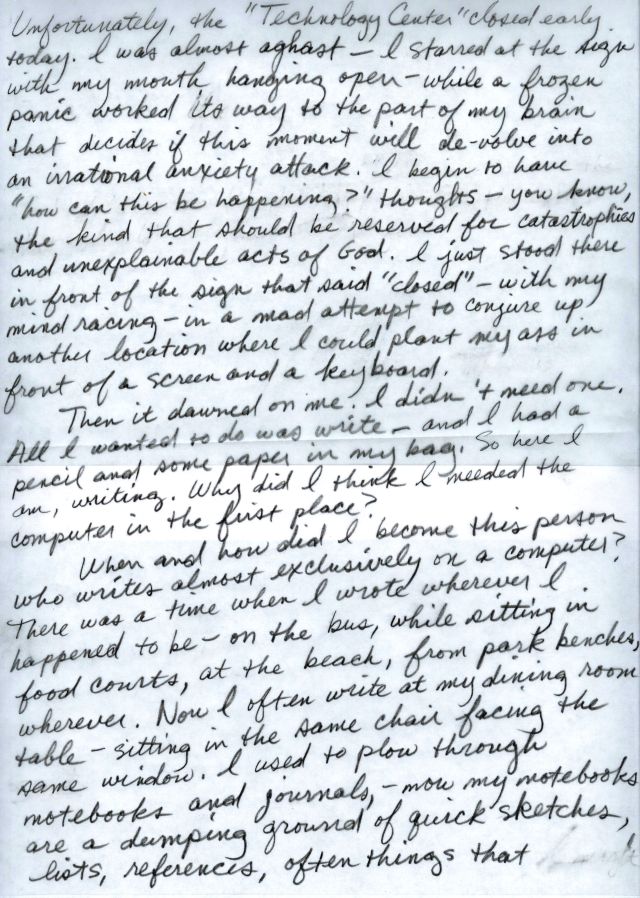 Unfortunately, the "Technology Center" closed early
today. I was almost aghast – I starred at the sign
with my mouth hanging open – while a frozen
panic worked its way to the part of my brain
that decides if this moment will de-volve into
an irrational anxiety attack. I begin to have
"how can this be happening?" thoughts – you know,
the kind that should be reserved for catastrophies
and unexplainable acts of God. I just stood there
in front of the sign that said "closed" – with my
mind racing – in a mad attempt to conjure up
another location where I could plant my ass in
front of a screen and a keyboard.
Then it dawned on me. I didn't need one.
All I wanted to do was write – and I had a
pencil and some paper in my bag. So here I
am, writing. Why did I think I needed the
computer in the first place?
When and how did I become this person
who writes almost exclusively on a computer?
There was a time when I wrote wherever I
happened to be – on the bus, while sitting in
food courts, at the beach, from park benches,
wherever. Now I often write at my dining room
table – sitting in the same chair facing the
same window. I used to plow through
notebooks and journals, – now my notebooks
are a dumping ground of quick sketches,
lists, references, often things that